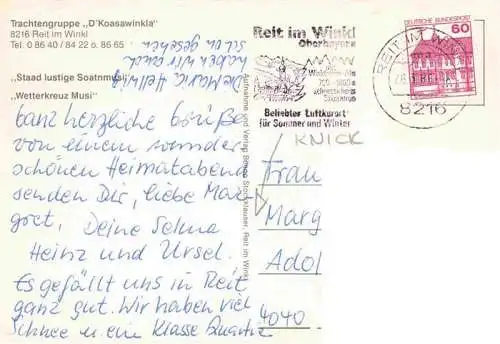 Trachtengruppe „D'Koasawinkla"
8216 Reit im Winkl
Tel. 0 86 40 / 84 22 o. 86 65
„Staad lustige Soatnmusi"
„Wetterkreuz Musi"
Die Maria Hellwig
haben wir auch
schon gesehen
Ganz herzliche Grüße
von einem wunder
schönen Heimatabend
senden Dir, liebe Mar
gret, Deine Selma
Heinz und Ursel.
Es gefällt uns in Reit
ganz gut. Wir haben viel
Schnee u. eine Klasse Quartier
Aufnahme und Verlag Reit im Winkl
Reit im Winkl
Oberbayern
Beliebter Luftkurort
für Sommer und Winter
REIT IM WINKL
8216
DEUTSCHE BUNDESPOST
60
KNICK
Frau
Marg
Adol
4040